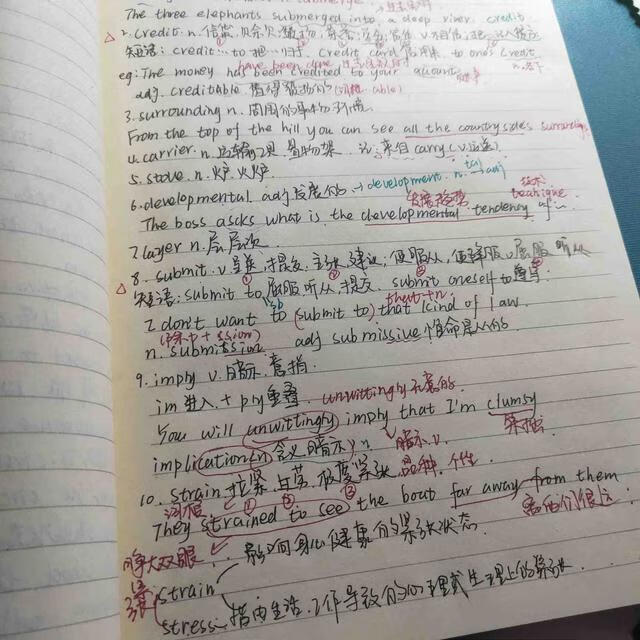 The three elephants submerged into a deep river. credit.
△ 2. credit. n. 信常
短语: credit...to 把...归于. credit card 信用卡 to one's credit
have been done
eg: The money has been credited to your acount.
adj. creditable 值得赞扬的 (able)
3. surrounding n. 周围的事物 环境.
From the top of the hill you can see all the countryside's surroundings
4. carrier. n. 运输工具 来自 carry (v.运送)
5. stove. n. 炉. 火炉
6. developmental adj 发展的 → development. n. + al → adj
发展趋势 technique 技术
The boss ascks what is the developmental tendency of ...
7. layer n. 层. 层次
△ 8. submit. v. 呈递, 提交; 主张, 建议; 使服从, 使降服 v. 屈服 听从
短语: submit to 屈服 听从, 提交. submit oneself to
sb that+n
I don't want to (submit to) that kind of law.
(除 t + ssion)
n. submission adj submissive 唯命是从的
9. imply v. 暗示. 意指
im 进入 + ply 重叠. unwittingly 不意的.
You will unwittingly imply that I'm clumsy
implication (n 含义 暗示) n 暗示 v. 笨拙
10. strain 拉紧 ① ② 极度紧张 ③ 品种, 个性
They strained to see the bout far away from them
睁大双眼 离他们很远
影响身心健康的紧张状态
紧张 strain
stress 指由生活、工作导致的心理或生理上的紧张.